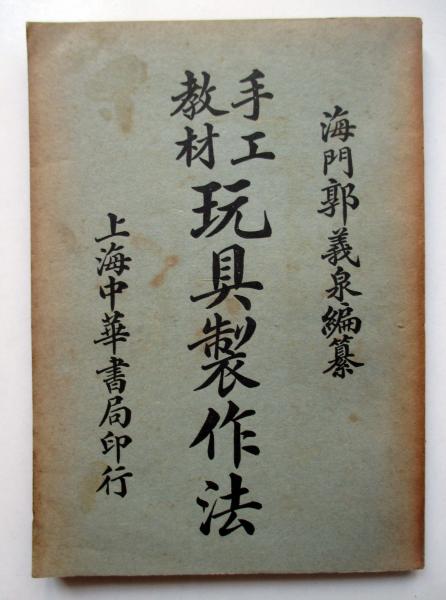 海門郭義泉編纂
手工
教材
玩具製作法
上海中華書局印行